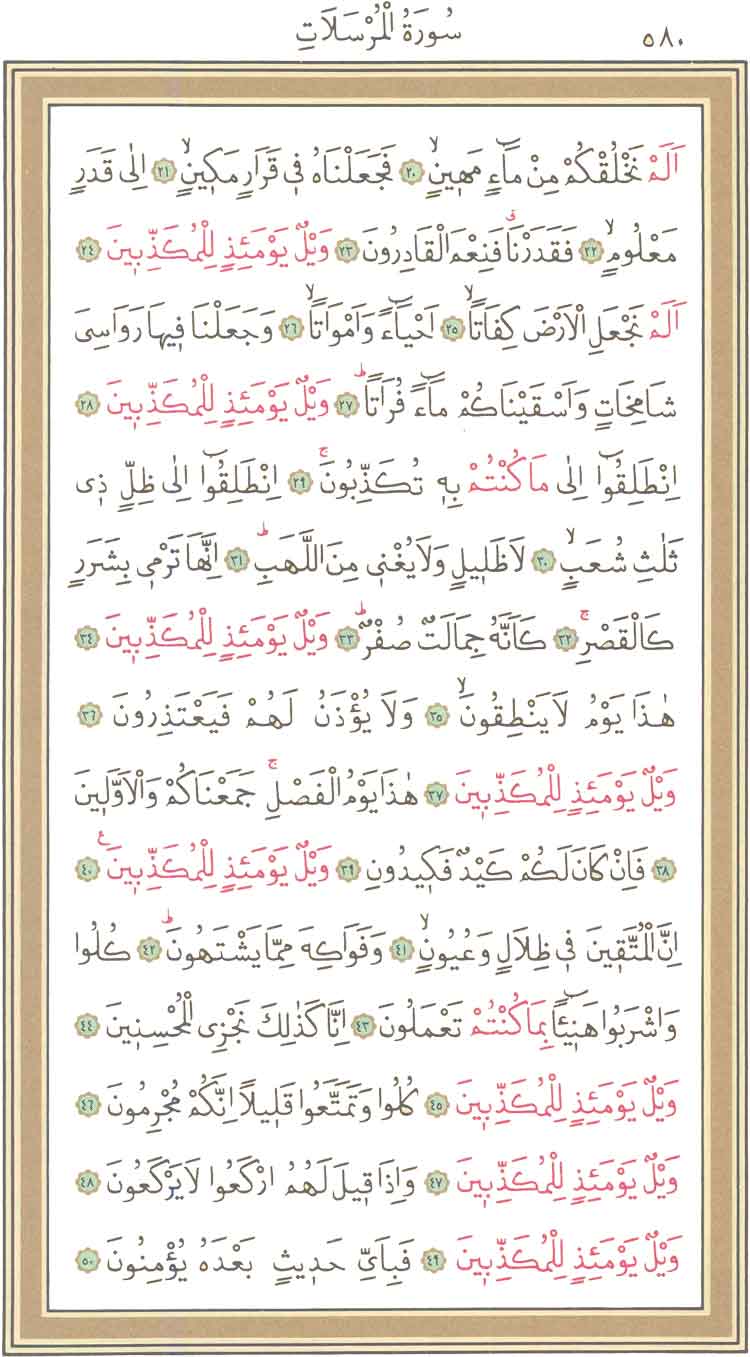 سُورَةُ الْمُرْسَلَاتِ ٥٨٠
اَلَمْ نَخْلُقْكُمْ مِنْ مَٓاءٍ مَه۪ينٍۙ ﴿٢٠﴾ فَجَعَلْنَاهُ ف۪ي قَرَارٍ مَك۪ينٍۙ ﴿٢١﴾ اِلٰى قَدَرٍ
مَعْلُومٍۙ ﴿٢٢﴾ فَقَدَرْنَاۗ فَنِعْمَ الْقَادِرُونَ ﴿٢٣﴾ وَيْلٌ يَوْمَئِذٍ لِلْمُكَذِّب۪ينَ ﴿٢٤﴾
اَلَمْ نَجْعَلِ الْاَرْضَ كِفَاتاًۙ ﴿٢٥﴾ اَحْيَٓاءً وَاَمْوَاتاًۙ ﴿٢٦﴾ وَجَعَلْنَا ف۪يهَا رَوَاسِيَ
شَامِخَاتٍ وَاَسْقَيْنَاكُمْ مَٓاءً فُرَاتاًۜ ﴿٢٧﴾ وَيْلٌ يَوْمَئِذٍ لِلْمُكَذِّب۪ينَ ﴿٢٨﴾
اِنْطَلِقُٓوا اِلٰى مَا كُنْتُمْ بِه۪ تُكَذِّبُونَۚ ﴿٢٩﴾ اِنْطَلِقُٓوا اِلٰى ظِلٍّ ذ۪ي
ثَلٰثِ شُعَبٍۙ ﴿٣٠﴾ لَا ظَل۪يلٍ وَلَا يُغْن۪ي مِنَ اللَّهَبِۜ ﴿٣١﴾ اِنَّهَا تَرْم۪ي بِشَرَرٍ
كَالْقَصْرِۚ ﴿٣٢﴾ كَاَنَّهُ جِمَالَتٌ صُفْرٌۜ ﴿٣٣﴾ وَيْلٌ يَوْمَئِذٍ لِلْمُكَذِّب۪ينَ ﴿٣٤﴾
هٰذَا يَوْمُ لَا يَنْطِقُونَۙ ﴿٣٥﴾ وَلَا يُؤْذَنُ لَهُمْ فَيَعْتَذِرُونَ ﴿٣٦﴾
وَيْلٌ يَوْمَئِذٍ لِلْمُكَذِّب۪ينَ ﴿٣٧﴾ هٰذَا يَوْمُ الْفَصْلِۚ جَمَعْنَاكُمْ وَالْاَوَّل۪ينَ
﴿٣٨﴾ فَاِنْ كَانَ لَكُمْ كَيْدٌ فَك۪يدُونِ ﴿٣٩﴾ وَيْلٌ يَوْمَئِذٍ لِلْمُكَذِّب۪ينَ۟ ﴿٤٠﴾
اِنَّ الْمُتَّق۪ينَ ف۪ي ظِلَالٍ وَعُيُونٍۙ ﴿٤١﴾ وَفَوَاكِهَ مِمَّا يَشْتَهُونَۜ ﴿٤٢﴾ كُلُوا
وَاشْرَبُوا هَن۪ٓيـٔاً بِمَا كُنْتُمْ تَعْمَلُونَ ﴿٤٣﴾ اِنَّا كَذٰلِكَ نَجْزِي الْمُحْسِن۪ينَ ﴿٤٤﴾
وَيْلٌ يَوْمَئِذٍ لِلْمُكَذِّب۪ينَ ﴿٤٥﴾ كُلُوا وَتَمَتَّعُوا قَل۪يلاً اِنَّكُمْ مُجْرِمُونَ ﴿٤٦﴾
وَيْلٌ يَوْمَئِذٍ لِلْمُكَذِّب۪ينَ ﴿٤٧﴾ وَاِذَا ق۪يلَ لَهُمُ ارْكَعُوا لَا يَرْكَعُونَ ﴿٤٨﴾
وَيْلٌ يَوْمَئِذٍ لِلْمُكَذِّب۪ينَ ﴿٤٩﴾ فَبِاَيِّ حَد۪يثٍ بَعْدَهُ يُؤْمِنُونَ ﴿٥٠﴾